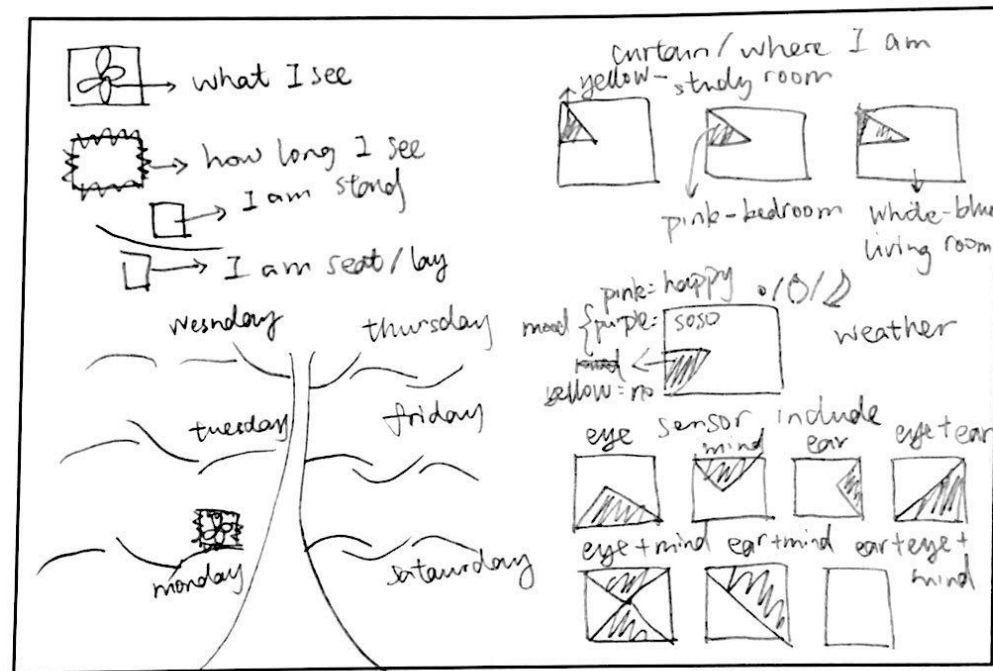 what I see
how long I see
I am stand
I am seat/lay
wesnday
thursday
tuesday
friday
monday
sataurday
curtain/where I am
yellow-study room
pink-bedroom
white-blue
living room
pink=happy
mood { purple= soso
yellow=no
weather
sensor include
eye
mind
ear
eye+ear
eye+mind
ear+mind
ear+eye+
mind